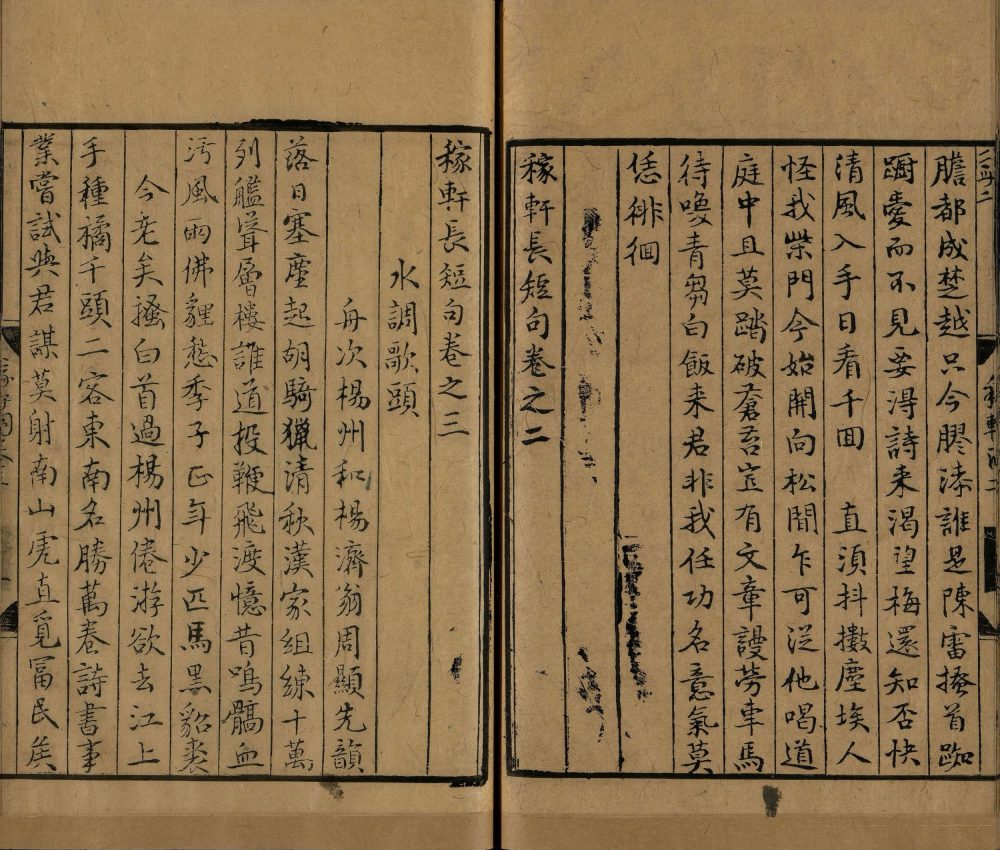 膽都成楚越只今膠漆誰是陳雷搔首踟
蹰愛而不見要得詩来渴望梅還知否快
清風入手日看千回　直須抖擻塵埃人
怪我柴門今始開向松間乍可從他喝道
庭中且莫踏破蒼苔豈有文章謾勞車馬
待喚青芻白飯来君非我任功名意氣莫
恁徘徊
稼軒長短句卷之二
稼軒長短句卷之三
水調歌頭
舟次楊州和楊濟翁周顯先韻
落日塞塵起胡騎獵清秋漢家組練十萬
列艦聳層樓誰道投鞭飛渡憶昔鳴髇血
汚風雨佛貍愁季子正年少匹馬黑貂裘
今老矣搔白首過楊州倦游欲去江上
手種橘千頭二客東南名勝萬卷詩書事
業嘗試與君謀莫射南山虎直覓富民侯